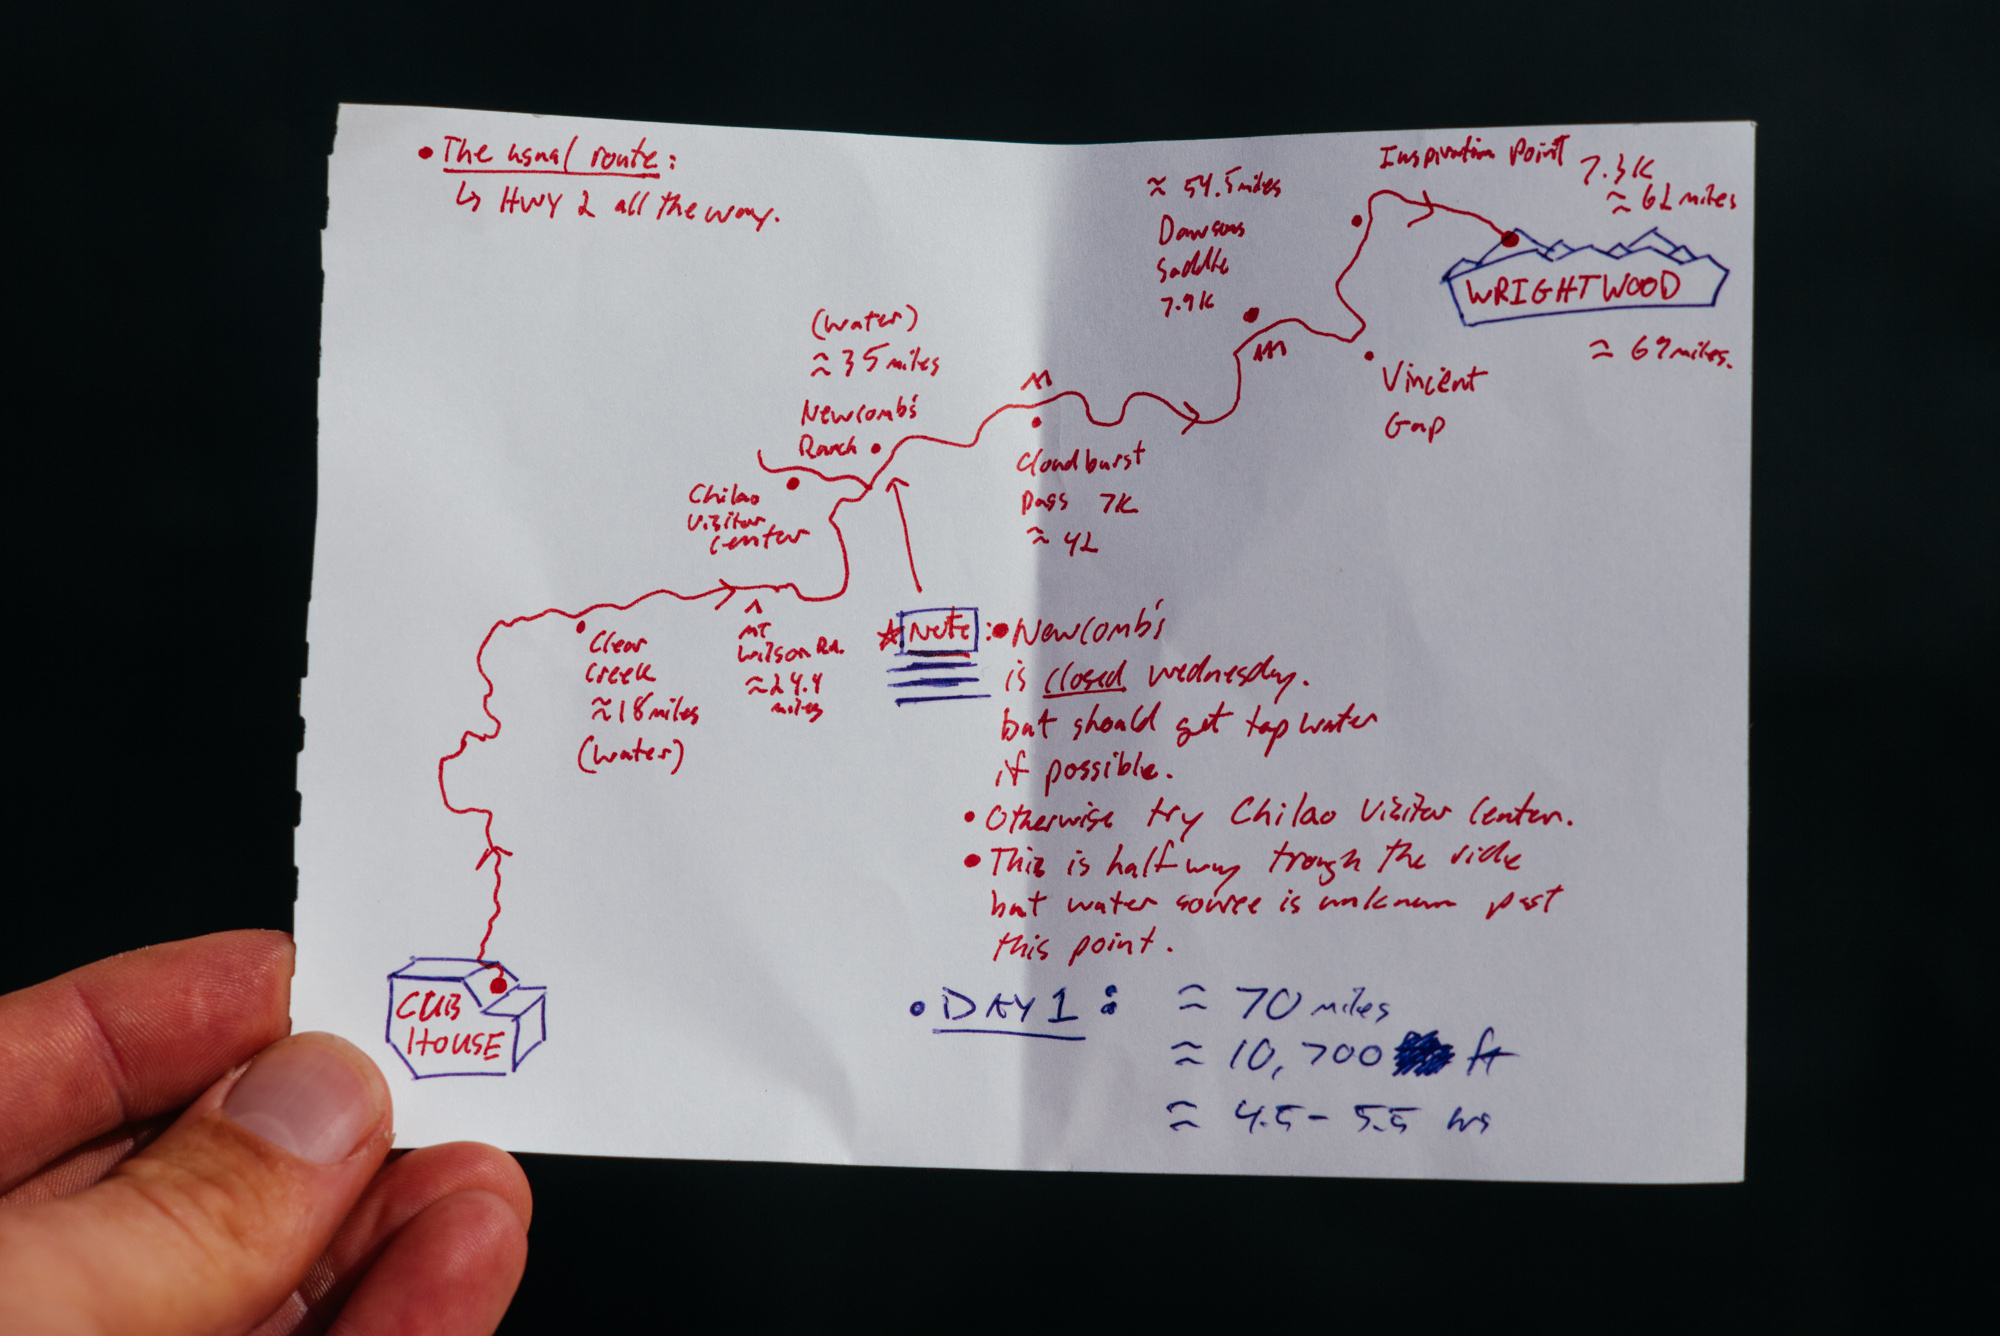 • The usual route:
↳ HWY 2 all the way.
Inspiration Point
7.3K
≈ 62 miles
≈ 54.5 miles
Dawsons
Saddle
7.9K
WRIGHTWOOD
≈ 69 miles.
Vincent
Gap
(water)
≈ 35 miles
Newcomb's
Ranch
Chilao
Visitor
Center
Cloudburst
pass 7K
≈ 42
Clear
Creek
≈ 18 miles
(water)
MT
Wilson Rd.
≈ 24.4
miles
Note: • Newcomb's
is closed wednesday.
but should get tap water
if possible.
• Otherwise try Chilao Visitor Center.
• This is halfway trough the ride
but water source is unknown past
this point.
CUB
HOUSE
• DAY 1: ≈ 70 miles
≈ 10,700 ft
≈ 4.5 - 5.5 hrs